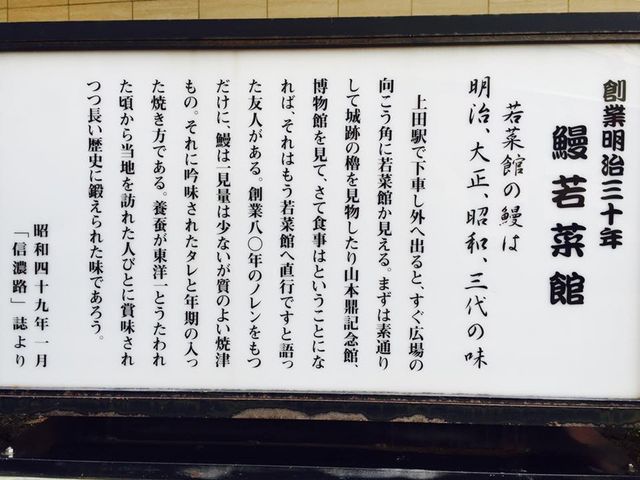 創業明治三十年
鰻若菜館
若菜館の鰻は
明治、大正、昭和、三代の味
上田駅で下車し外へ出ると、すぐ広場の
向こう角に若菜館か見える。まずは素通り
して城跡の櫓を見物したり山本鼎記念館、
博物館を見て、さて食事はということにな
れば、それはもう若菜館へ直行ですと語っ
た友人がある。創業八〇年のノレンをもつ
だけに、鰻は一見量は少ないが質のよい焼津
もの。それに吟味されたタレと年期の入っ
た焼き方である。養蚕が東洋一とうたわれ
た頃から当地を訪れた人びとに賞味され
つつ長い歴史に鍛えられた味であろう。
昭和四十九年一月
「信濃路」誌より